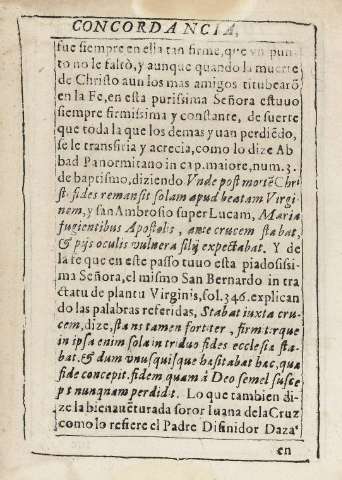 CONCORDANCIA,
fue siempre en ella tan firme, que vn pun-
to no le faltò, y aunque quando la muerte
de Christo aun los mas amigos titubearõ
en la Fe, en esta purissima Señora estuuo
siempre firmissima y constante, de suerte
que toda la que los demas yuan perdiẽdo,
se le transferia y acrecia, como lo dize Ab
bad Panormitano in cap. maiore, num. 3.
de baptismo, diziendo Vnde post mortẽ Chri
sti fides remansit solam apud beatam Virgi
nem, y san Ambrosio super Lucam, Maria
fugientibus Apostolis, ante crucem stabat,
& pijs oculis vulnera filij expectabat. Y de
la fe que en este passo tuuo esta piadosissi-
ma Señora, el mismo San Bernardo in tra
ctatu de planctu Virginis, fol. 346. explican
do las palabras referidas, Stabat iuxta cru-
cem, dize, stans tamen fortiter, firmiterque
in ipsa enim sola in triduo fides ecclesiæ sta-
bat. & dum vnusquisque hæsitabat hæc, qua
fide concepit. fidem quam à Deo semel susce
pit nunquam perdidit. Lo que tambien di-
ze la bienauẽturada soror Iuana dela Cruz
como lo refiere el Padre Difinidor Daza
en